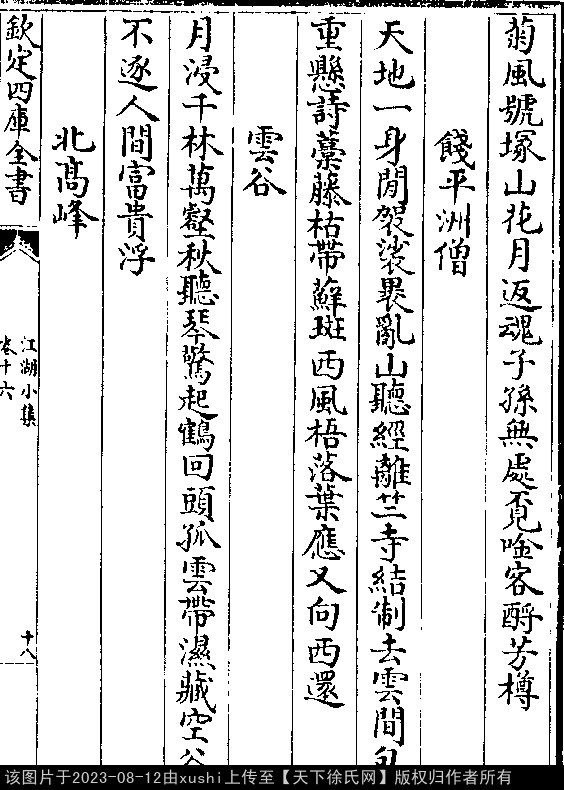 菊風號塚山花月返魂子孫無處覔唫客酹芳樽
餞平洲僧
天地一身閒袈裟裹亂山聽經離竺寺結制去雲間
重懸詩藁藤枯帶蘚斑西風梧落葉應又向西還
雲谷
月浸千林萬壑秋聽琴驚起鶴回頭孤雲帶濕藏空谷
不逐人間富貴浮
北高峰
欽定四庫全書
江湖小集
卷十六
十八
该图片于2023-08-12由xushi上传至【天下徐氏网】版权归作者所有